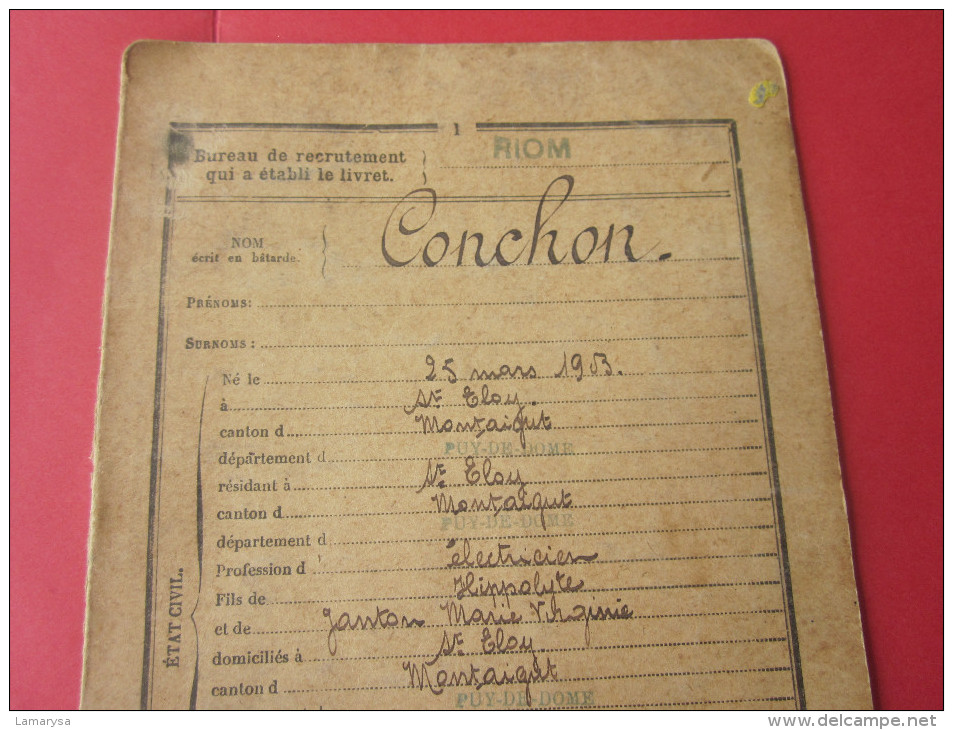 1
Bureau de recrutement RIOM
qui a établi le livret.
NOM Conchon.
écrit en bâtarde.
PRÉNOMS:
SURNOMS :
ÉTAT CIVIL.
Né le 25 mars 1903.
à St Eloy.
canton d Montaigut
département d PUY-DE-DOME
résidant à St Eloy
canton d Montaigut
département d PUY-DE-DOME
Profession d électricien
Fils de Hippolyte
et de Janton Marie Virginie
domiciliés à St Eloy.
canton d Montaigut
PUY-DE-DOME
Lamarysa
http://www.delcampe.net